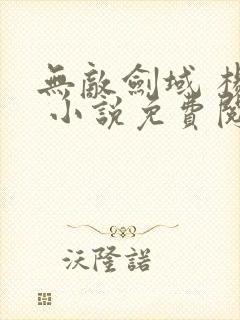 無敵劍域
小說免費閱
沃隆諾